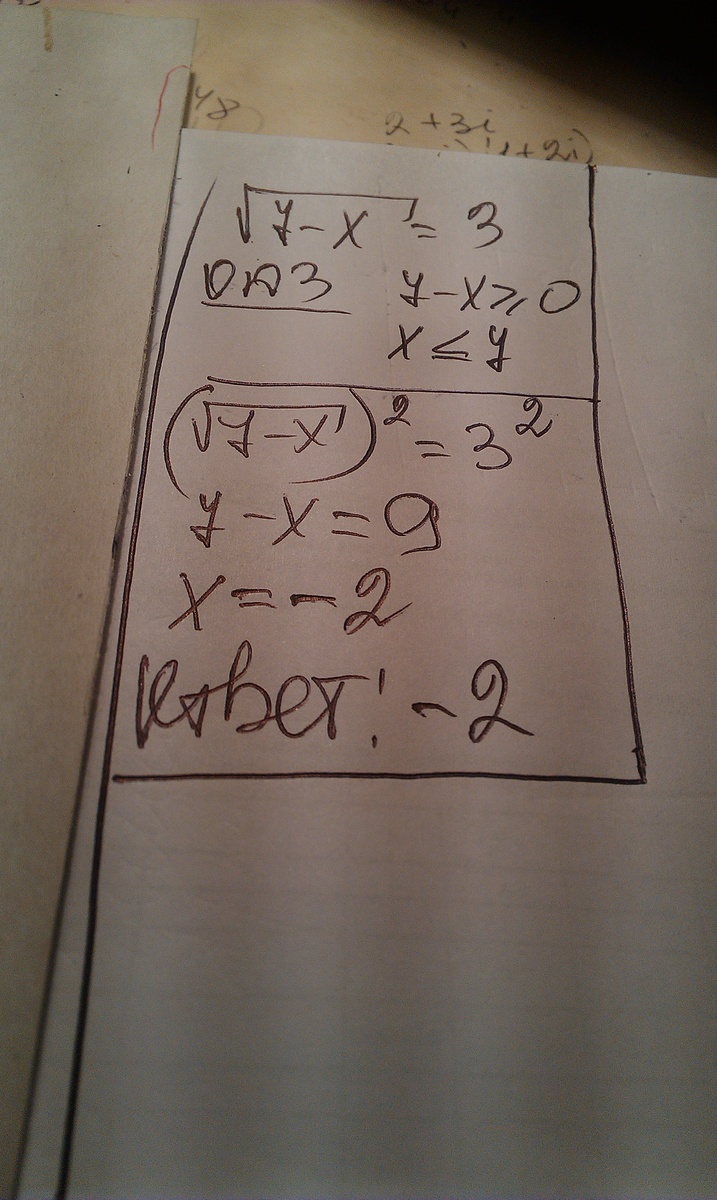 2 + 3i
√7-x = 3
ОДЗ 7-x ≥ 0
x ≤ 7
(√7-x)² = 3²
7-x = 9
x = -2
Ответ: -2